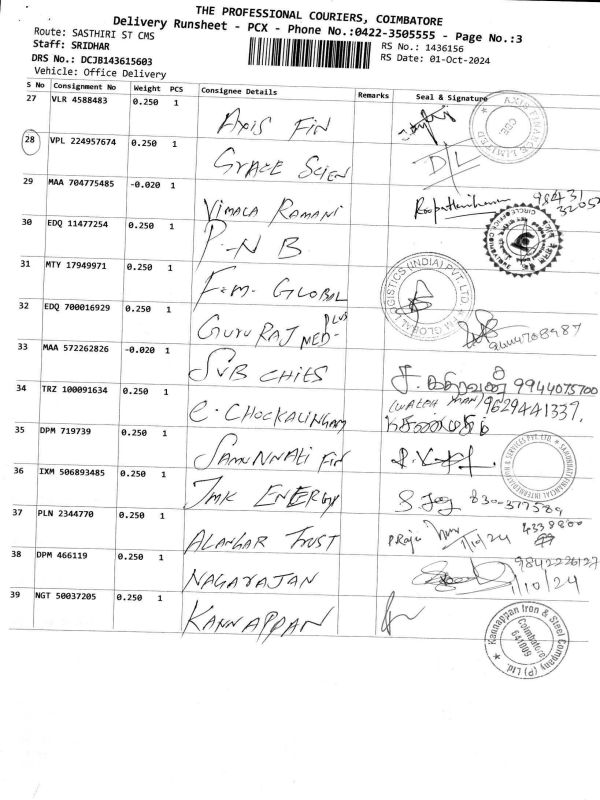 THE PROFESSIONAL COURIERS, COIMBATORE
Delivery Runsheet - PCX - Phone No.:0422-3505555 - Page No.:3
Route: SASTHIRI ST CMS
Staff: SRIDHAR
RS No.: 1436156
DRS No.: DCJB143615603
RS Date: 01-Oct-2024
Vehicle: Office Delivery
S No Consignment No Weight PCS Consignee Details Remarks Seal & Signature
27 VLR 4588483 0.250 1 Axis Fin
28 VPL 224957674 0.250 1 GRACE SCIEN D/L
29 MAA 704775485 -0.020 1 VIMALA RAMANI 98431
30 EDQ 11477254 0.250 1 P-N B
31 MTY 17949971 0.250 1 F-M- GLOBAL
32 EDQ 700016929 0.250 1 GURU RAJ MED- PLUS
33 MAA 572262826 -0.020 1 SVB CHITS 9944075700
34 TRZ 100091634 0.250 1 C. CHOCKALINGAM 9629441337
35 DPM 719739 0.250 1 SAMUNNATI FIN
36 IXM 506893485 0.250 1 JMK ENERGY
37 PLN 2344770 0.250 1 ALANGAR TRUST 1/10/24
38 DPM 466119 0.250 1 NAGARAJAN 9842226127
1/10/24
39 NGT 50037205 0.250 1 KANNAPPAN
Kannappan Iron & Steel Company (P) Ltd.
Coimbatore
641009